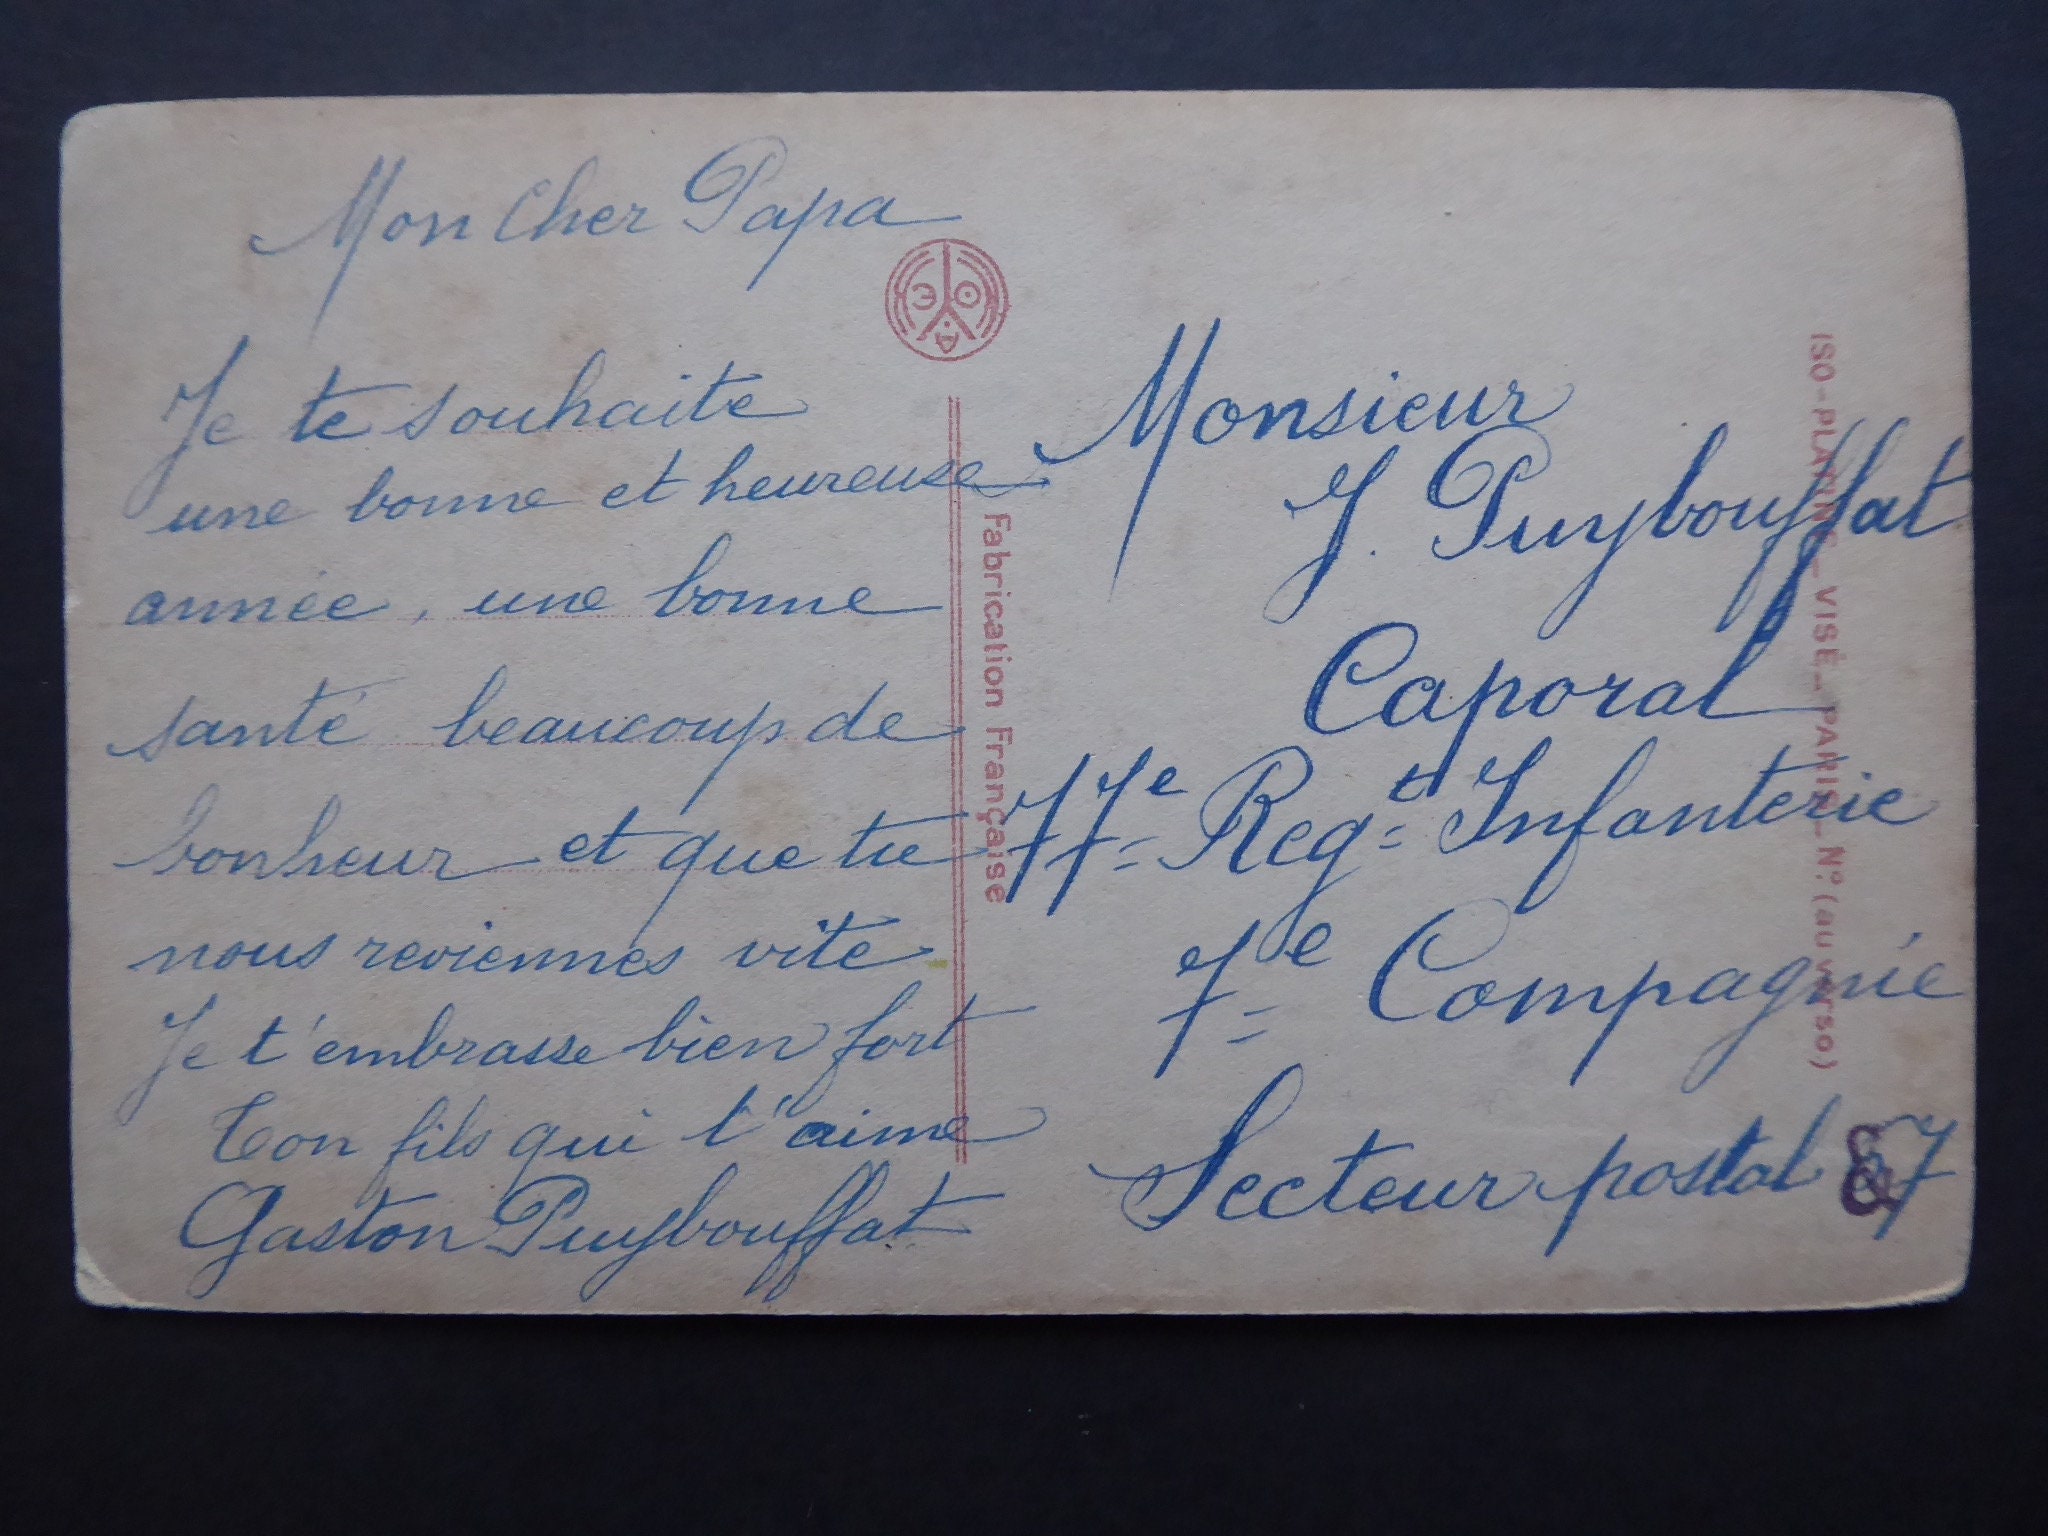 Mon Cher Papa
Je te souhaite
une bonne et heureuse
année, une bonne
santé beaucoup de
bonheur et que tu
nous reviennes vite
Je t'embrasse bien fort
Ton fils qui t'aime
Gaston Puybouffat
Fabrication Française
Monsieur
J. Puybouffat
Caporal
77e Regt Infanterie
7e Compagnie
Secteur postal 87
ISO-PLANNE_VISÉ_PARIS_No. (au verso)